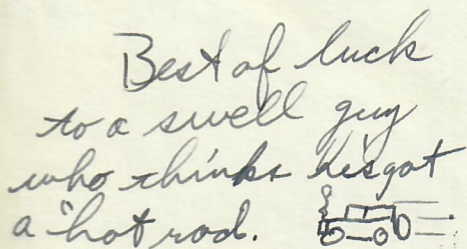 Best of luck
to a swell guy
who thinks hesgot
a "hot rod.